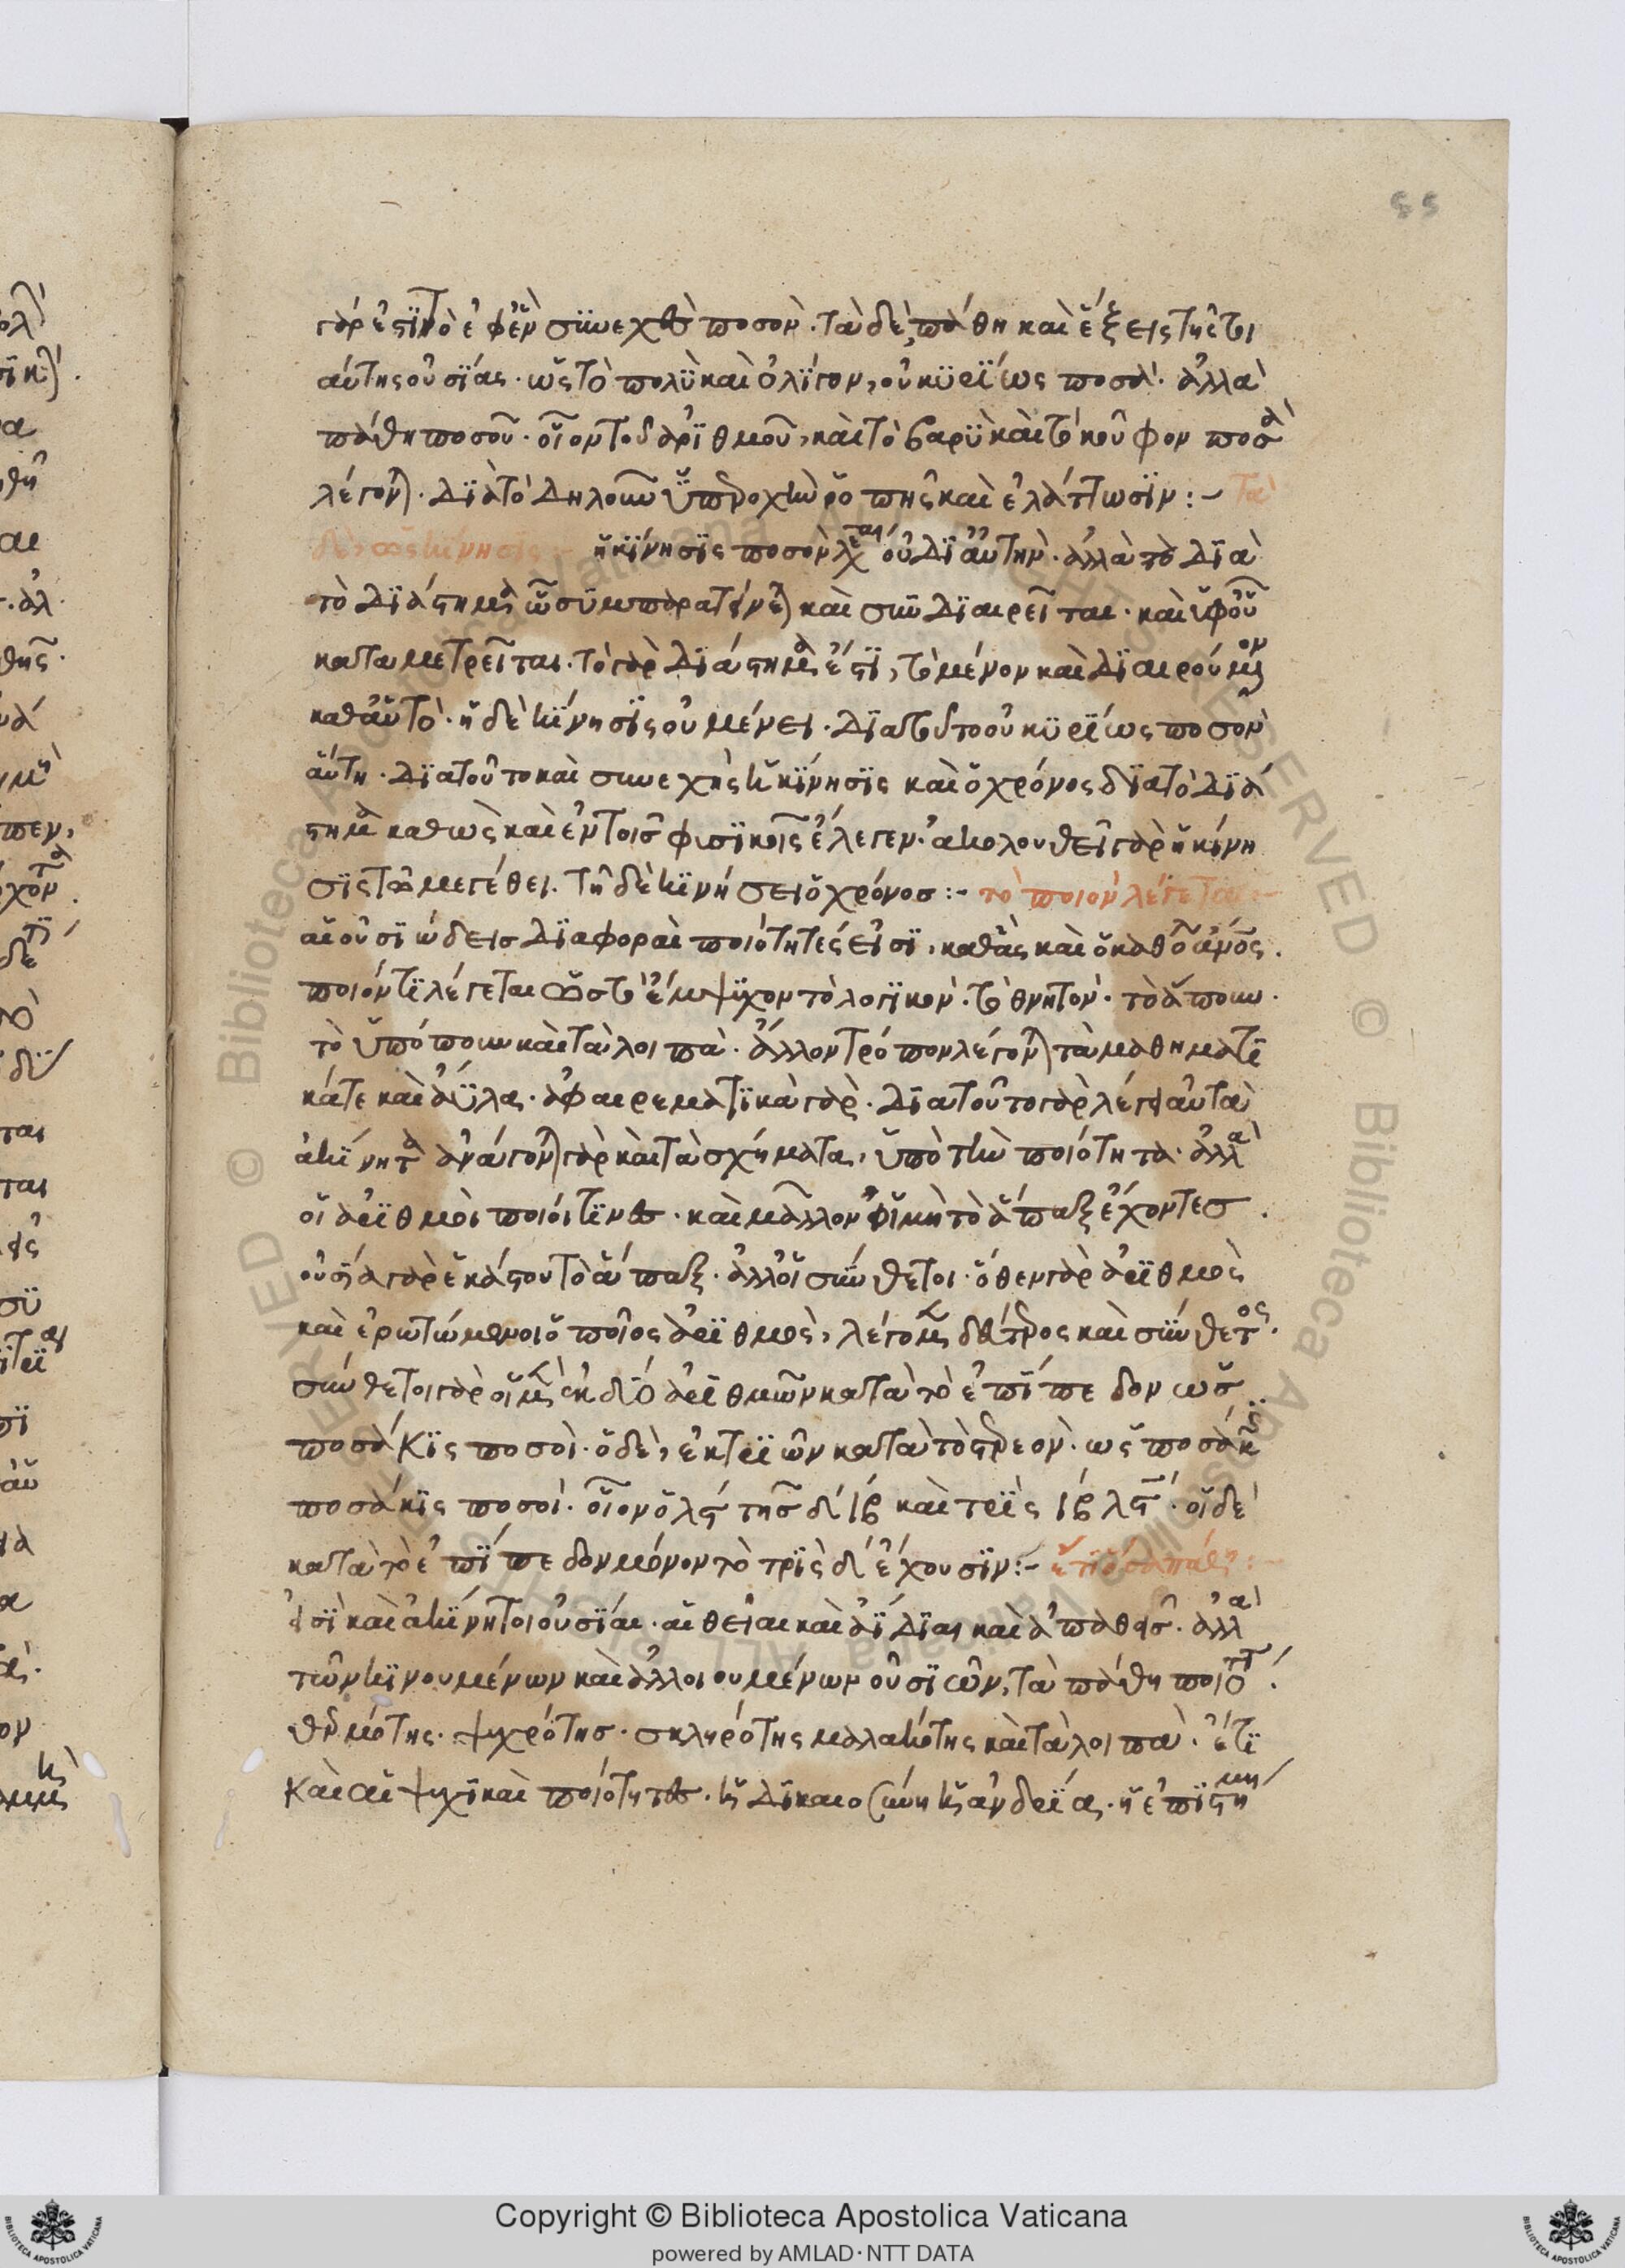 55
γάρ ἐστὶ τὸ ἐφ' ἓν συνεχὲς ποσόν. τὰ δὲ, πάθη καὶ ἕξεις τῆς τοι
αύτης οὐσίας. ὡς τὸ πολὺ καὶ ὀλίγον, οὐ κυρίως ποσά. ἀλλὰ
πάθη ποσοῦ. οἷον τοῦ ἀριθμοῦ, καὶ τὸ βαρὺ καὶ τὸ κοῦφον ποσὰ
λέγονται. διὰ τὸ δηλοῦν ὑπεροχὴν ῥοπῆς καὶ ἐλάττωσιν :- τὰ
δὲ ὡς κίνησις :- ἡ κίνησις ποσὸν λέγεται οὐ δι' αὐτήν. ἀλλὰ τὸ διὰ
τὸ διάστημα ᾧ συμπαρατείνεται καὶ συνδιαιρεῖται. καὶ ὑφ' οὗ
καταμετρεῖται. τὸ γὰρ διάστημα ἐστὶ, τὸ μένον καὶ διαιρούμενον
καθ' αὑτό. ἡ δὲ κίνησις οὐ μένει. διὰ τοῦτο οὐ κυρίως ποσὸν
αὕτη. διὰ τοῦτο καὶ συνεχὴς ἡ κίνησις καὶ ὁ χρόνος διὰ τὸ διά
στημα καθὼς καὶ ἐν τοῖς φυσικοῖς ἔλεγεν. ἀκολουθεῖ γὰρ ἡ κίνη
σις τῷ μεγέθει. τῇ δὲ κινήσει ὁ χρόνος :- τὸ ποιὸν λέγεται :-
αἱ οὐσιώδεις διαφοραὶ ποιότητές εἰσι, καθ' ἃς καὶ ὁ καθ' ὃ ἄνθρωπος.
ποιόν τι λέγεται ὡς τὸ ἔμψυχον τὸ λογικόν. τὸ θνητόν. τὸ ἄπουν.
τὸ ὑπόπουν καὶ τὰ λοιπά. ἄλλον τρόπον λέγονται τὰ μαθηματι
κά τε καὶ ἄϋλα. ἀφαιρεματικὰ γάρ. διὰ τοῦτο γὰρ λέγει αὐτὰ
ἀκίνητα ἀνάγονται γὰρ καὶ τὰ σχήματα, ὑπὸ τὴν ποιότητα. ἀλλὰ
οἱ ἀριθμοὶ ποιοί τινες. καὶ μᾶλλον οἱ μὴ τὸ ἅπαξ ἔχοντες.
οὐσία γὰρ ἑκάστου τὸ ἅπαξ. ἀλλ' οἱ σύνθετοι. ὅθεν γὰρ ἀριθμὸς
καὶ ἐρωτώμενοι ὁ ποῖος ἀριθμὸς, λέγομεν δεύτερος καὶ σύνθετος.
σύνθετοι γὰρ οἱ μὲν ἐκ δύο ἀριθμῶν κατὰ τὸ ἐπίπεδον ὡς
ποσάκις ποσοί. ὁ δὲ, ἐκ τριῶν κατὰ τὸ στερεόν. ὡς ποσάκις
ποσάκις ποσοί. οἷον ὁ λϛ τρὶς δ ιβ καὶ τρὶς ιβ λϛ. οἱ δὲ
κατὰ τὸ ἐπίπεδον μόνον τὸ τρὶς δ ἔχουσιν :- ἔτι ὅσα πάθη :-
εἰσὶ καὶ ἀκίνητοι οὐσίαι. αἱ θεῖαι καὶ ἀΐδιαι καὶ ἀπαθεῖς. ἀλλὰ
τῶν κινουμένων καὶ ἀλλοιουμένων οὐσιῶν, τὰ πάθη ποιότητες.
θερμότης. ψυχρότης. σκληρότης μαλακότης καὶ τὰ λοιπά. ἔτι
καὶ αἱ ψυχικαὶ ποιότητες. ἡ δικαιοσύνη ἡ ἀνδρεία. ἡ ἐπιστήμη
Copyright © Biblioteca Apostolica Vaticana
powered by AMLAD·NTT DATA